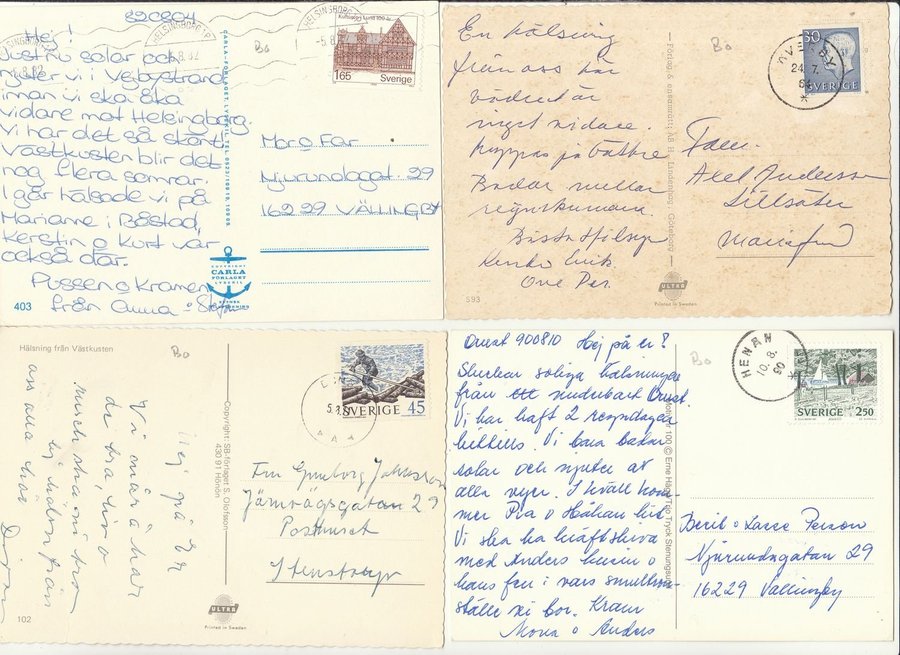 820804
Hej!
Just nu solar och
njuter vi i Vejbystrand
innan vi ska åka
vidare mot Helsingborg.
Vi har det så skönt!
Västkusten blir det
nog flera somrar.
I går hälsade vi på
Marianne i Båstad,
Kerstin o Kurt var
också där.
Pussen o Kramen
från Anna
403
CARLA-FÖRLAGET, LYSEKIL
COPYRIGHT
CARLA
FÖRLAGET
LYSEKIL
HELSINGBORG
5.8.82
Bo
165 Sverige
Mor o Far
Njurundagat. 29
162 29 VÄLLINGBY
En hälsning
från oss här
vädret är
inget vidare.
hoppas på bättre
Badar mellan
regnskurarna.
Bästa Hälsn
Ove Per.
593
Förlag & ensamrätt: AB H. Lindenhag, Göteborg
Bo
30
SVERIGE
24.7.
64
Fam.
Axel Andersson
Lillsäter
ULTRA
Printed in Sweden
Hälsning från Västkusten
Bo
Hej på Er
Vi mår bra här
102
Copyright: SB-förlaget S. Olofsson
430 91 Hönön
SVERIGE 45
Järnvägsgatan 29
Posthuset
Stenstorp
ULTRA
Printed in Sweden
Orust 900810 Hej på er!
Skickar soliga hälsningar
från ett underbart Orust.
Vi har haft 2 regndagar
hittills. Vi bara badar
solar och njuter av
alla vyer. I kväll kom-
mer Pia o Håkan hit.
Vi ska ha kräftskiva
med Anders kusin o
hans fru i vars smultron-
ställe vi bor. Kram
Mona o Anders
Bo
HENÅN
10.8.
90
SVERIGE 2.50
Berit o Lasse Persson
Njurundagatan 29
16229 Vällingby